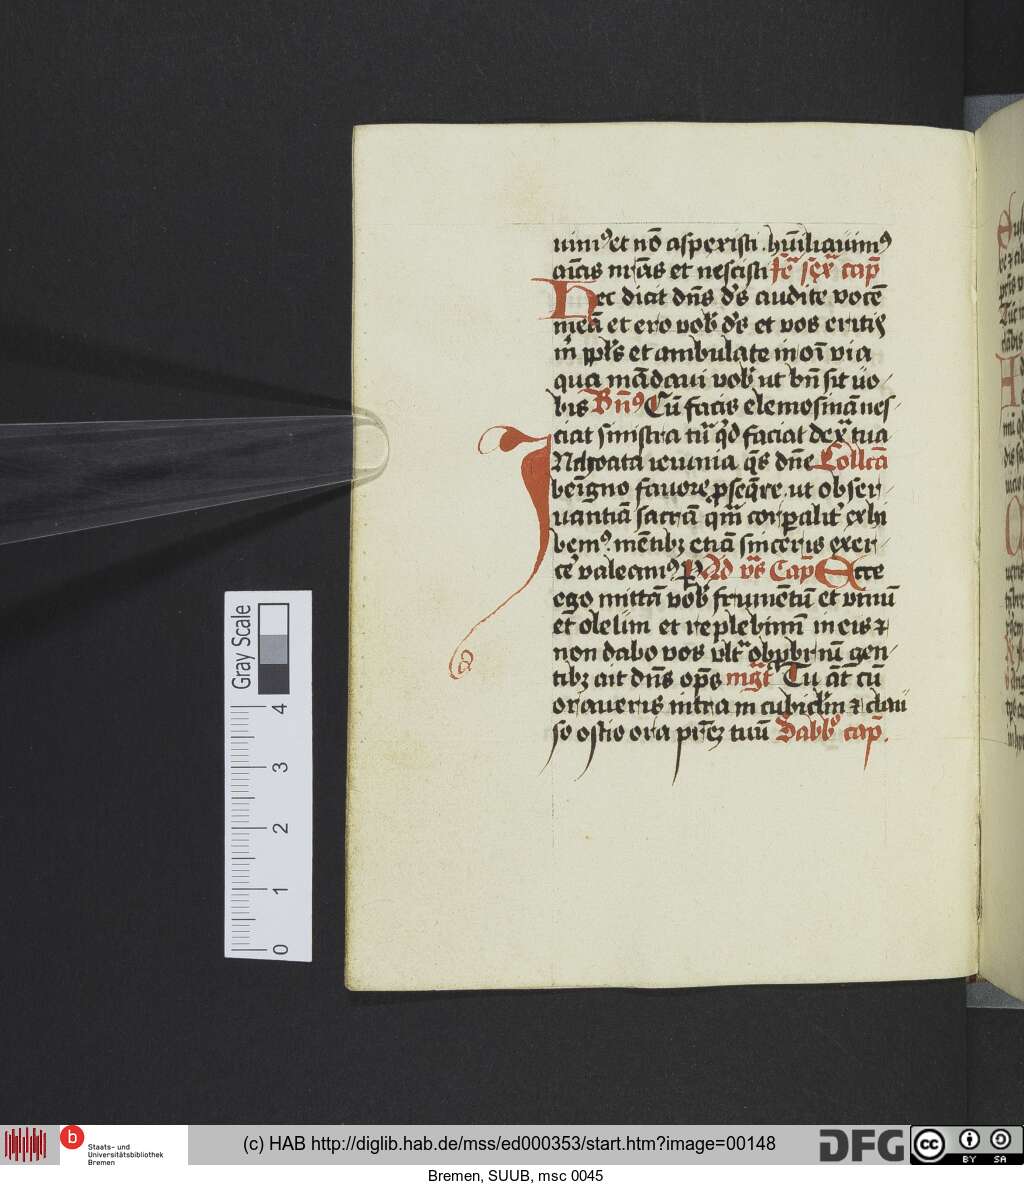 uim⁹ et nō aspexisti . hūiliauim⁹
aīas nr̄as et nescisti fe᷑ sex᷑ cap̄
Hec dicit dn̄s d's audite vocē
meā et ero vob' d's et vos eritis
m̄ ppl's et ambulate in oī via
qua mādaui vob' ut bn̄ sit uo
bis Bn̄⁹ Cū facis elemosinā nes
ciat sinistra tu᷑ qd̄ faciat dex᷑ tua
Inchoata ieiunia q̄s dn̄e Collc̄a
benigno fauore ꝓseq̄re ut obser
uantiā sacrā qm̄ corꝑalit' exhi
bem⁹ . mētibꝫ etiā sinceris exer
ce' valeam⁹ p Ad vs̄ Cap̄ Ecce
ego mittā vob' frumētū et vinū
et oleum et replebimī in eis ⁊
non dabo vos ult᷑ obpbriū gen
tibꝫ ait dn̄s op̄s mg̅t Tu āt cū
oraueris intra in cubicl'm ⁊ clau
so ostio ora pr̄eꝫ tuū Sabb' cap̄.
Gray Scale
0 1 2 3 4
b Staats- und
Universitätsbibliothek
Bremen
(c) HAB http://diglib.hab.de/mss/ed000353/start.htm?image=00148
DFG
cc BY SA
Bremen, SUUB, msc 0045